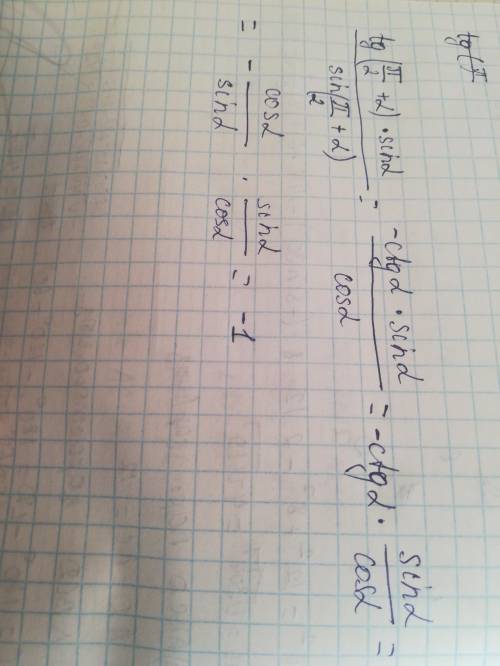 tg(π
tg(π/2 + α) · sinα / sin(π/2 + α) = -ctgα · sinα / cosα = -ctgα · sinα / cosα =
= - cosα / sinα · sinα / cosα = -1